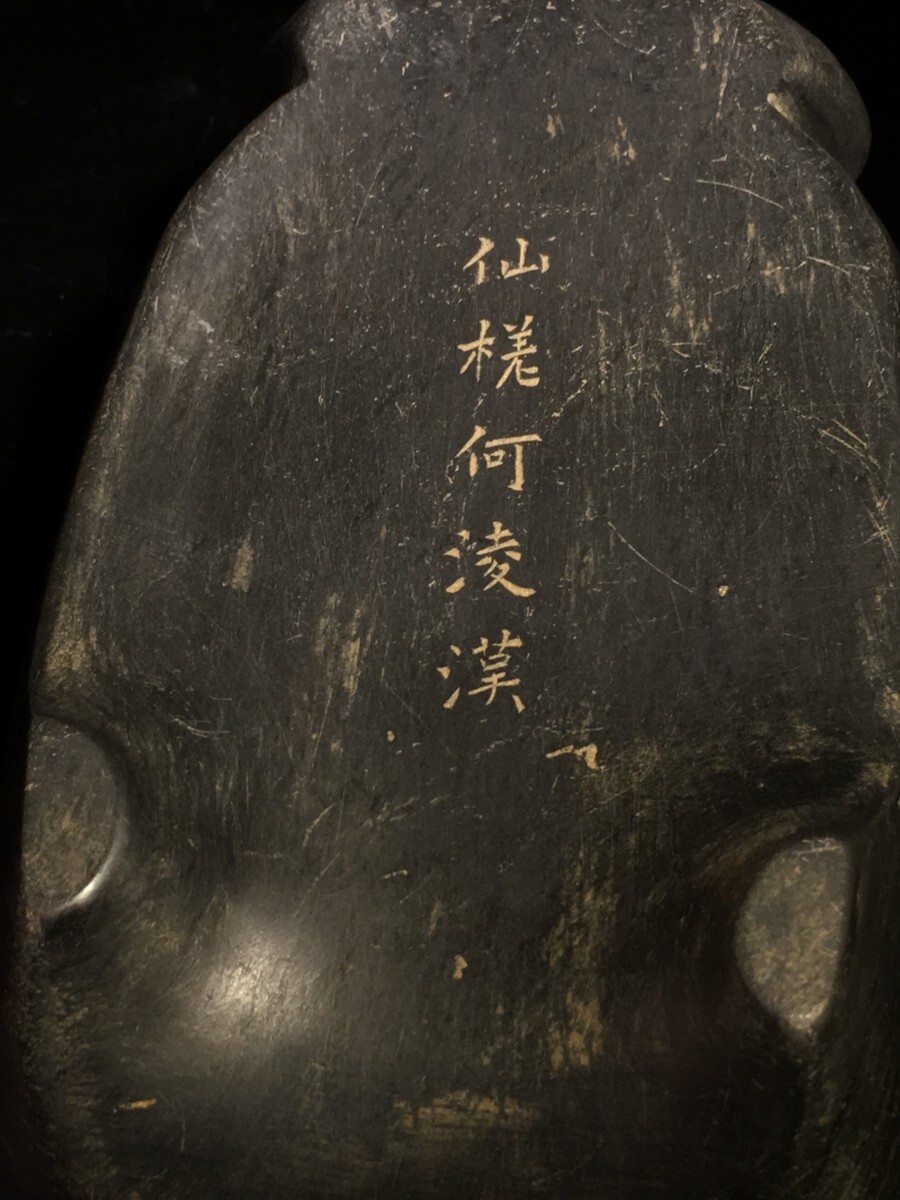 仙槎何淩漢